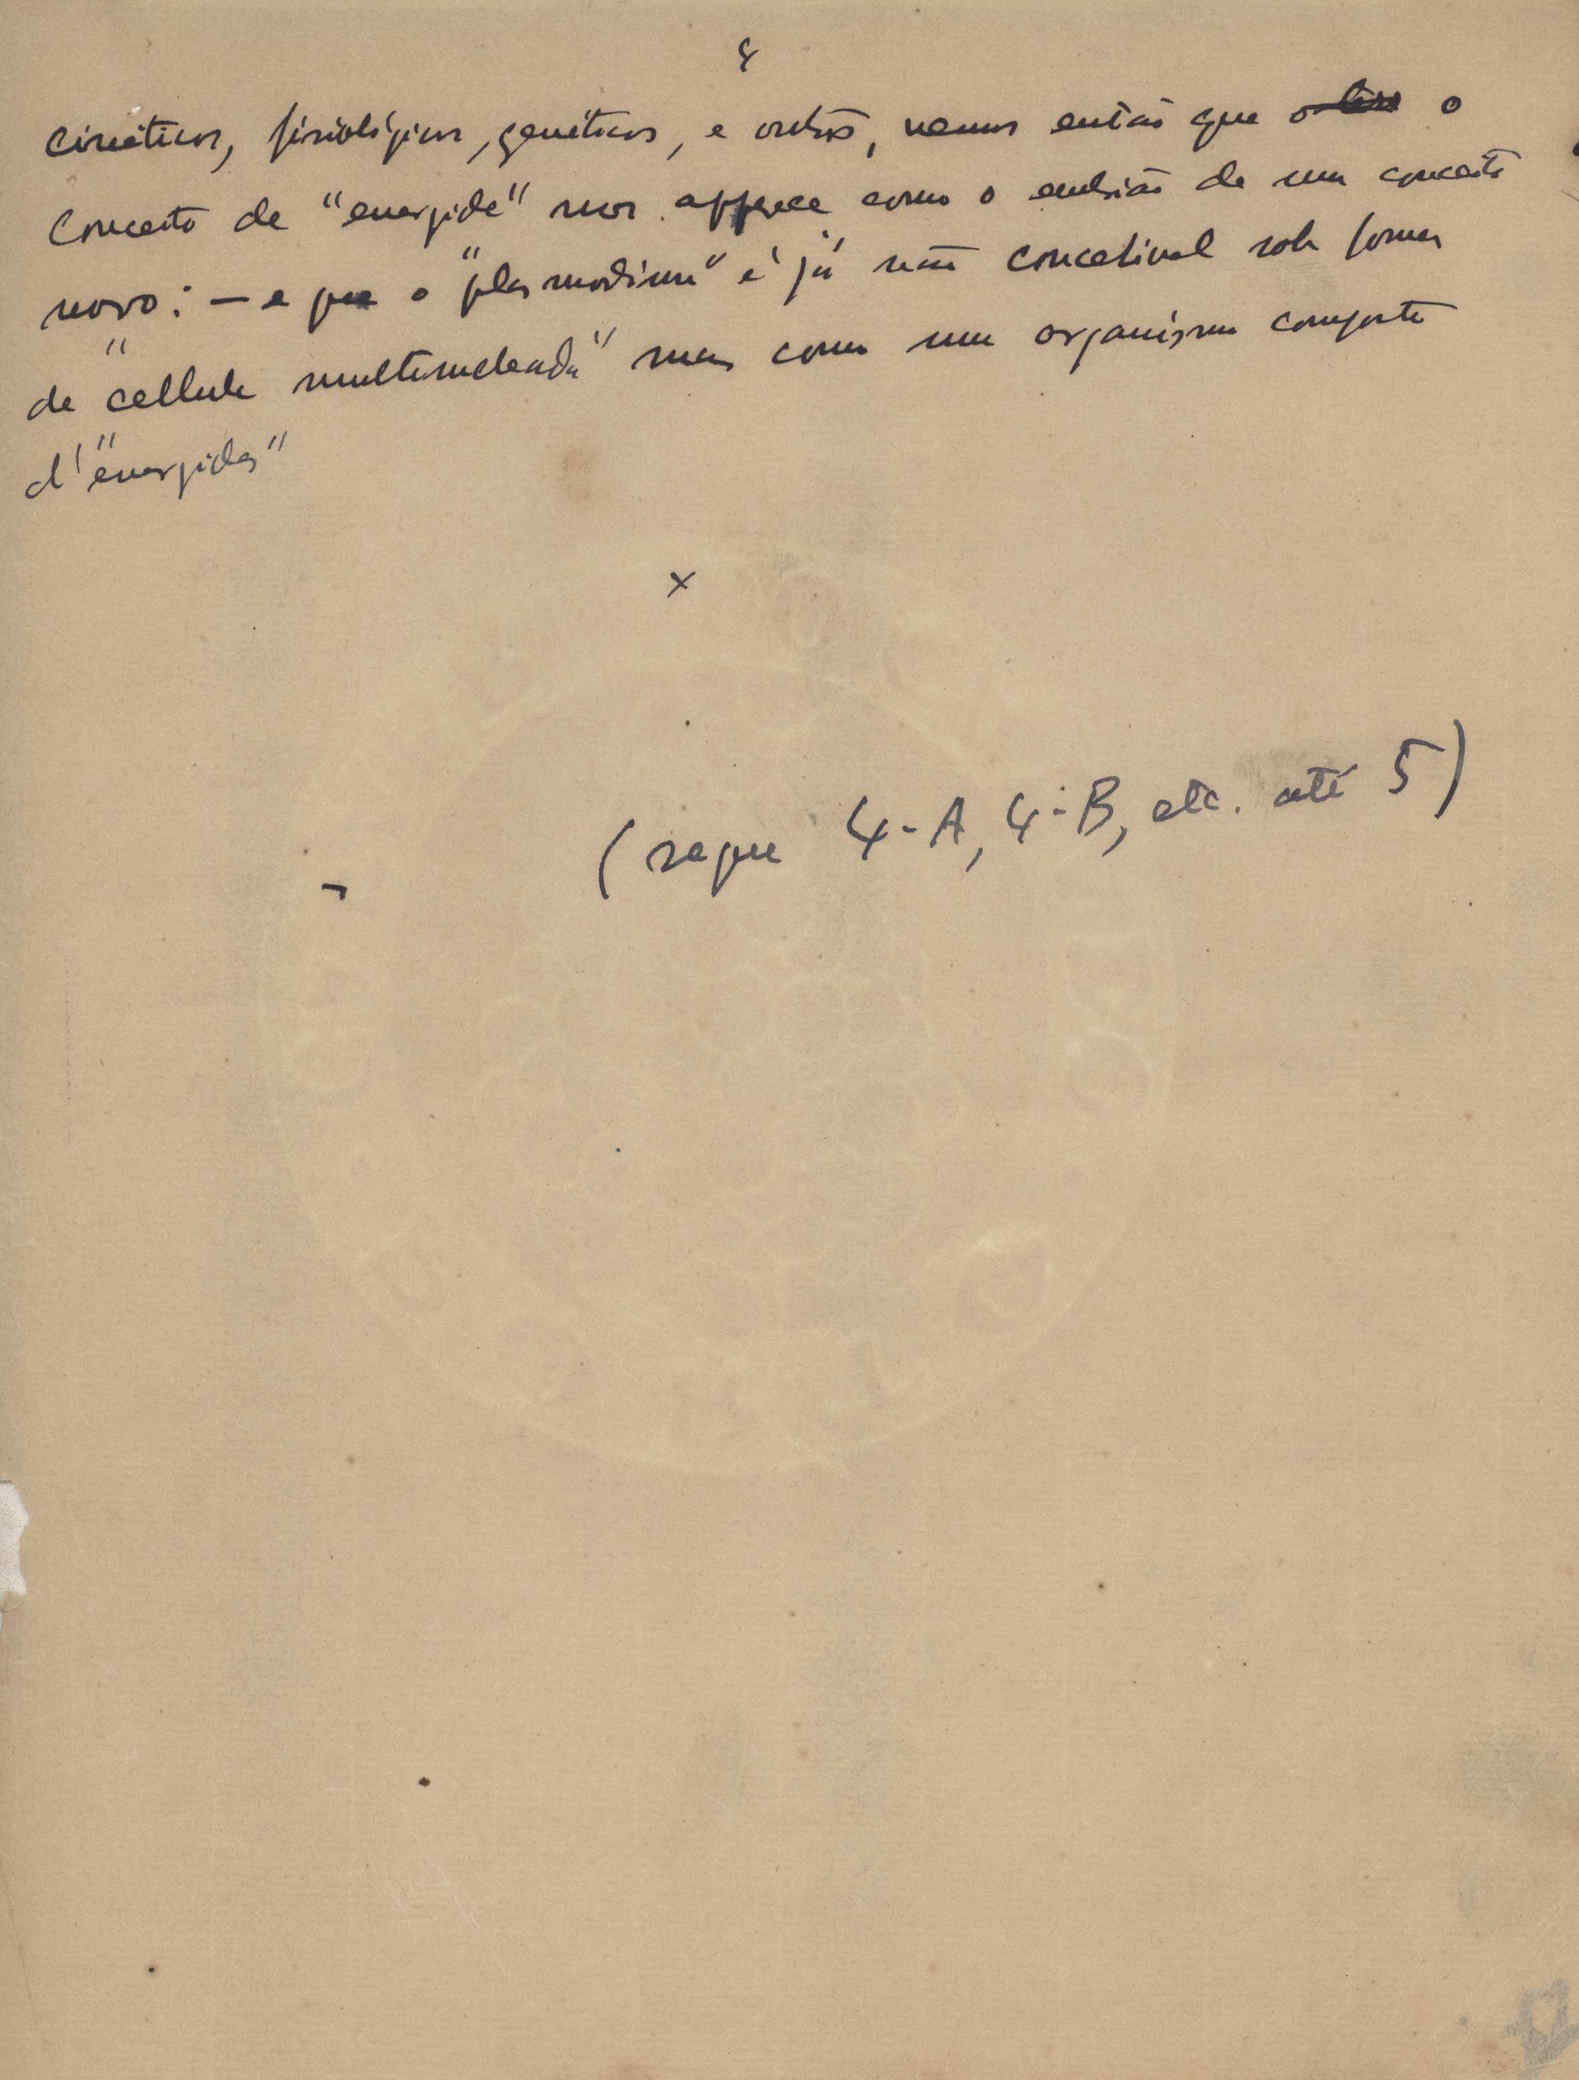 4
cinéticos, fisiológicos, genéticos, e outros, vemos então que o
conceito de "energide" nos apparece como o embrião de um conceito
novo: — e que o "plasmodium" é já não concebivel sob forma
de "cellula multinucleada" mas como um organismo composto
d'"energides"
x
(segue 4-A, 4-B, etc. até 5)